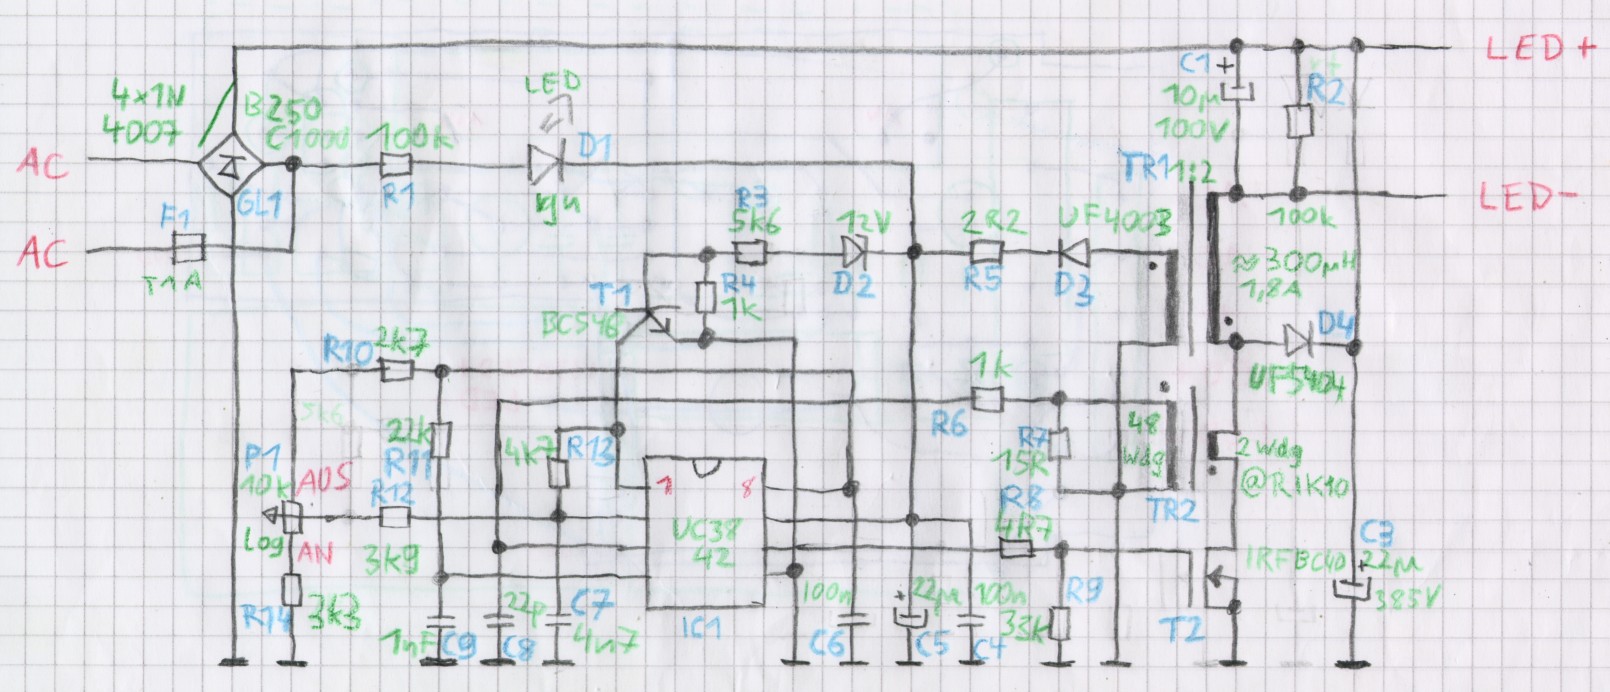 LED+
C1
+
10µ
100V
R2
4×1N
4007
B250
C1000
LED
D1
100k
AC
GL1
R1
gn
TR1 1:2
LED-
F1
AC
T1A
R3
5k6
12V
2R2
UF4003
100k
≈300µH
1,8A
R4
1k
D2
R5
D3
T1
BC546
D4
R10 2k7
1k
UF5404
5k6
22k
R11
4k7
R13
R6
R7
15R
48
Wdg
2Wdg
@R1K10
P1
10k
AUS
R12
1
8
R8
4R7
TR2
Log
AN
3k9
UC38
42
C3
22µ
385V
IRFBC40
R14
3k3
22p
C7
100n
+
22µ
100n
33k
R9
T2
1nF
C9
C8
4n7
IC1
C6
C5
C4